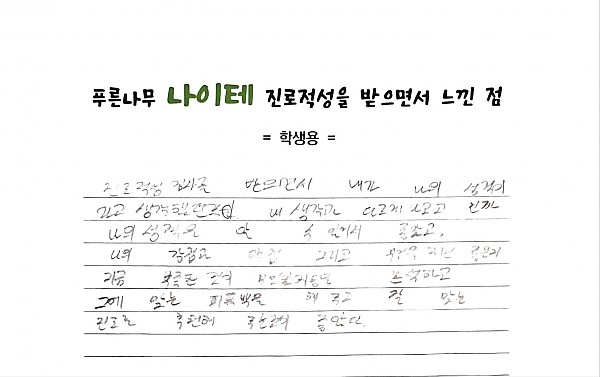 푸른나무 나이테 진로적성을 받으면서 느낀 점
= 학생용 =
진로적성 검사를 받으면서 내가 나의 성격이
라고 생각했던것이 내 생각과 다르게 나오고
나의 성격을 알 수 있어서 좋았고,
나의 강점과 약점 그리고
지금 부족한 것이 무엇인지를 분석하고
그에 맞는 피드백을 해 주고 잘 맞는
진로를 추천해 주는것이 좋았다.